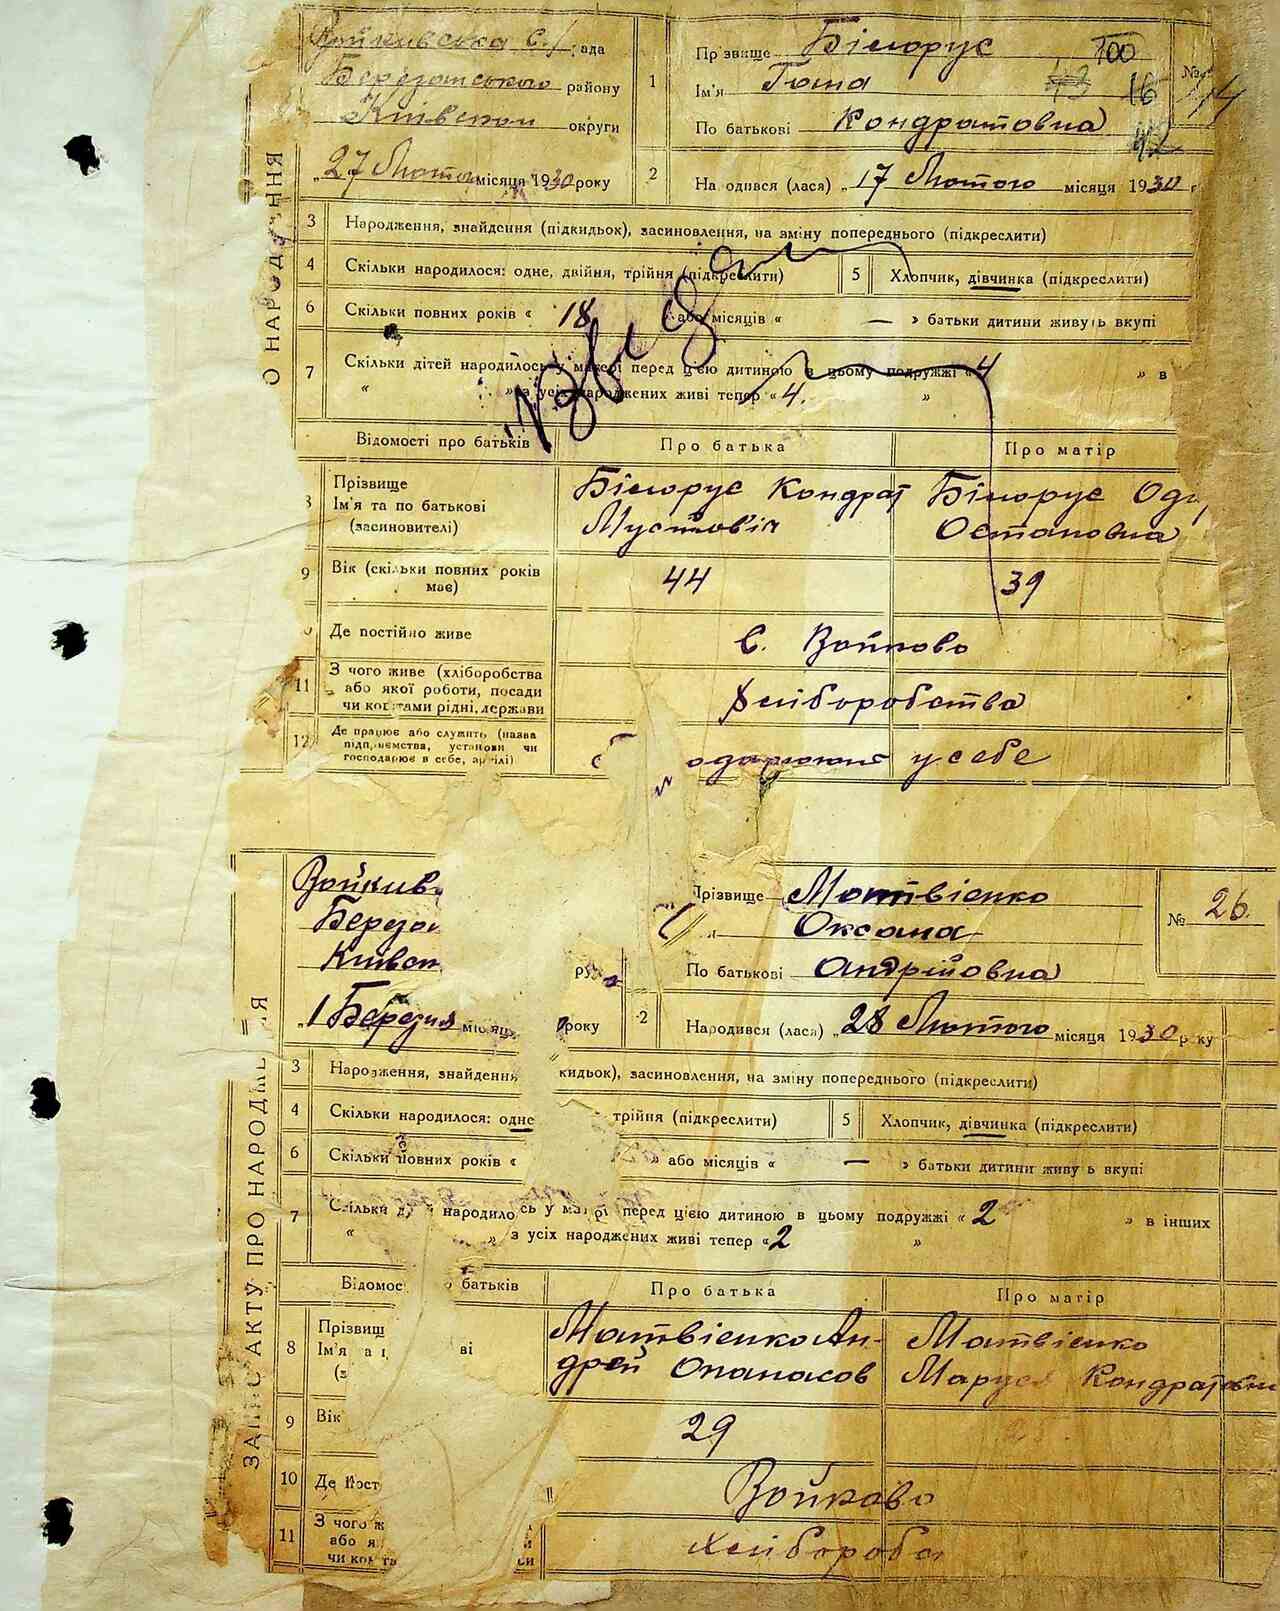 Войкивська с/рада
Березанського району
Київскои округи
„27 Лютого місяця 1930 року
1
Прізвище Білорус
100
Ім'я Гана
43 16
По батькові Кондратовна
42
№ 14
2
На одився (лася) „17 Лютого місяця 1930 г
О НАРОД НЯ
3 Народження, знайдення (підкидьок), засиновлення, на зміну попереднього (підкреслити)
4 Скільки народилося: одне, двійня, трійня (підкреслити)
5 Хлопчик, дівчинка (підкреслити)
6 Скільки повних років « 18 або місяців « — » батьки дитини живуть вкупі
7 Скільки дітей народилось у матері перед цією дитиною в цьому подружжі « 4 » в
« » з усіх народжених живі тепер « 4. »
Відомості про батьків
Про батька
Про матір
8 Прізвище
Ім'я та по батькові
(засиновителі)
Білорус Кондрат
Мустовіч
Білорус Од
Остаповна
9 Вік (скільки повних років
має)
44
39
Де постійно живе
С. Войково
11 З чого живе (хліборобства
або якої роботи, посади
чи коштами рідні, держави
Хліборобства
12 Де працює або служить (назва
підприємства, установи чи
господарює в себе, артілі)
одарюють у себе
ЗАПИС АКТУ ПРО НАРОДЖЕ ЯЯ
Войкив
Береза
Київск
„1 Березня місяця 0 року
Прізвище Матвієнко
Оксана
По батькові Андрійовна
№ 26.
2 Народився (лася) „28 Лютого місяця 1930 року
3 Народження, знайдення кидьок), засиновлення, на зміну попереднього (підкреслити)
4 Скільки народилося: одне трійня (підкреслити)
5 Хлопчик, дівчинка (підкреслити)
6 Скільки повних років « » або місяців « — » батьки дитини живу ь вкупі
7 Скільки народилось у матері перед цією дитиною в цьому подружжі « 2 » в інших
« » з усіх народжених живі тепер « 2 »
Відомос батьків
Про батька
Про матір
8 Прізвищ
Ім'я ві
Матвієнко Ан-
дрей Опанасов
Матвієнко
Маруся Кондратовна
9 Вік
29
10 Де пост
Войково
11 З чого ж
або я
чи кошта
Хлібороба